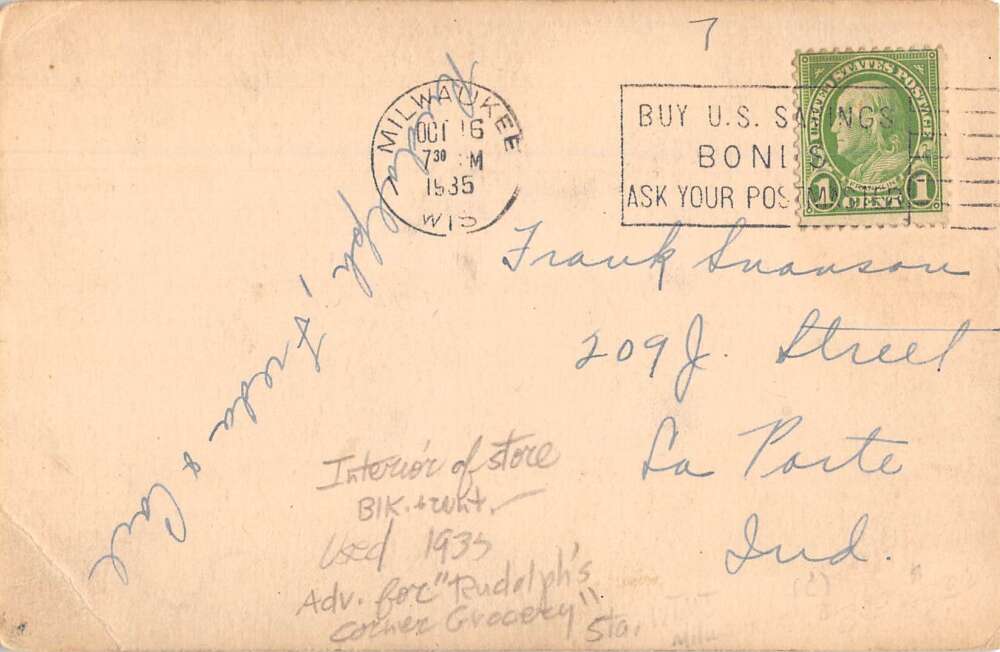 7
MILWAUKEE
OCT 16
7 30 M
1935
WIS
BUY U.S. SAVINGS
BONDS
ASK YOUR POSTMASTER
UNITED STATES POSTAGE
FRANKLIN
1 CENT 1
Frank Swanson
209 J. Street
La Porte
Ind.
Rudolph, Freda & Carl
Interior of store
Blk. + wht.
Used 1935
Adv. for "Rudolph's
Corner Grocery"
Sta.